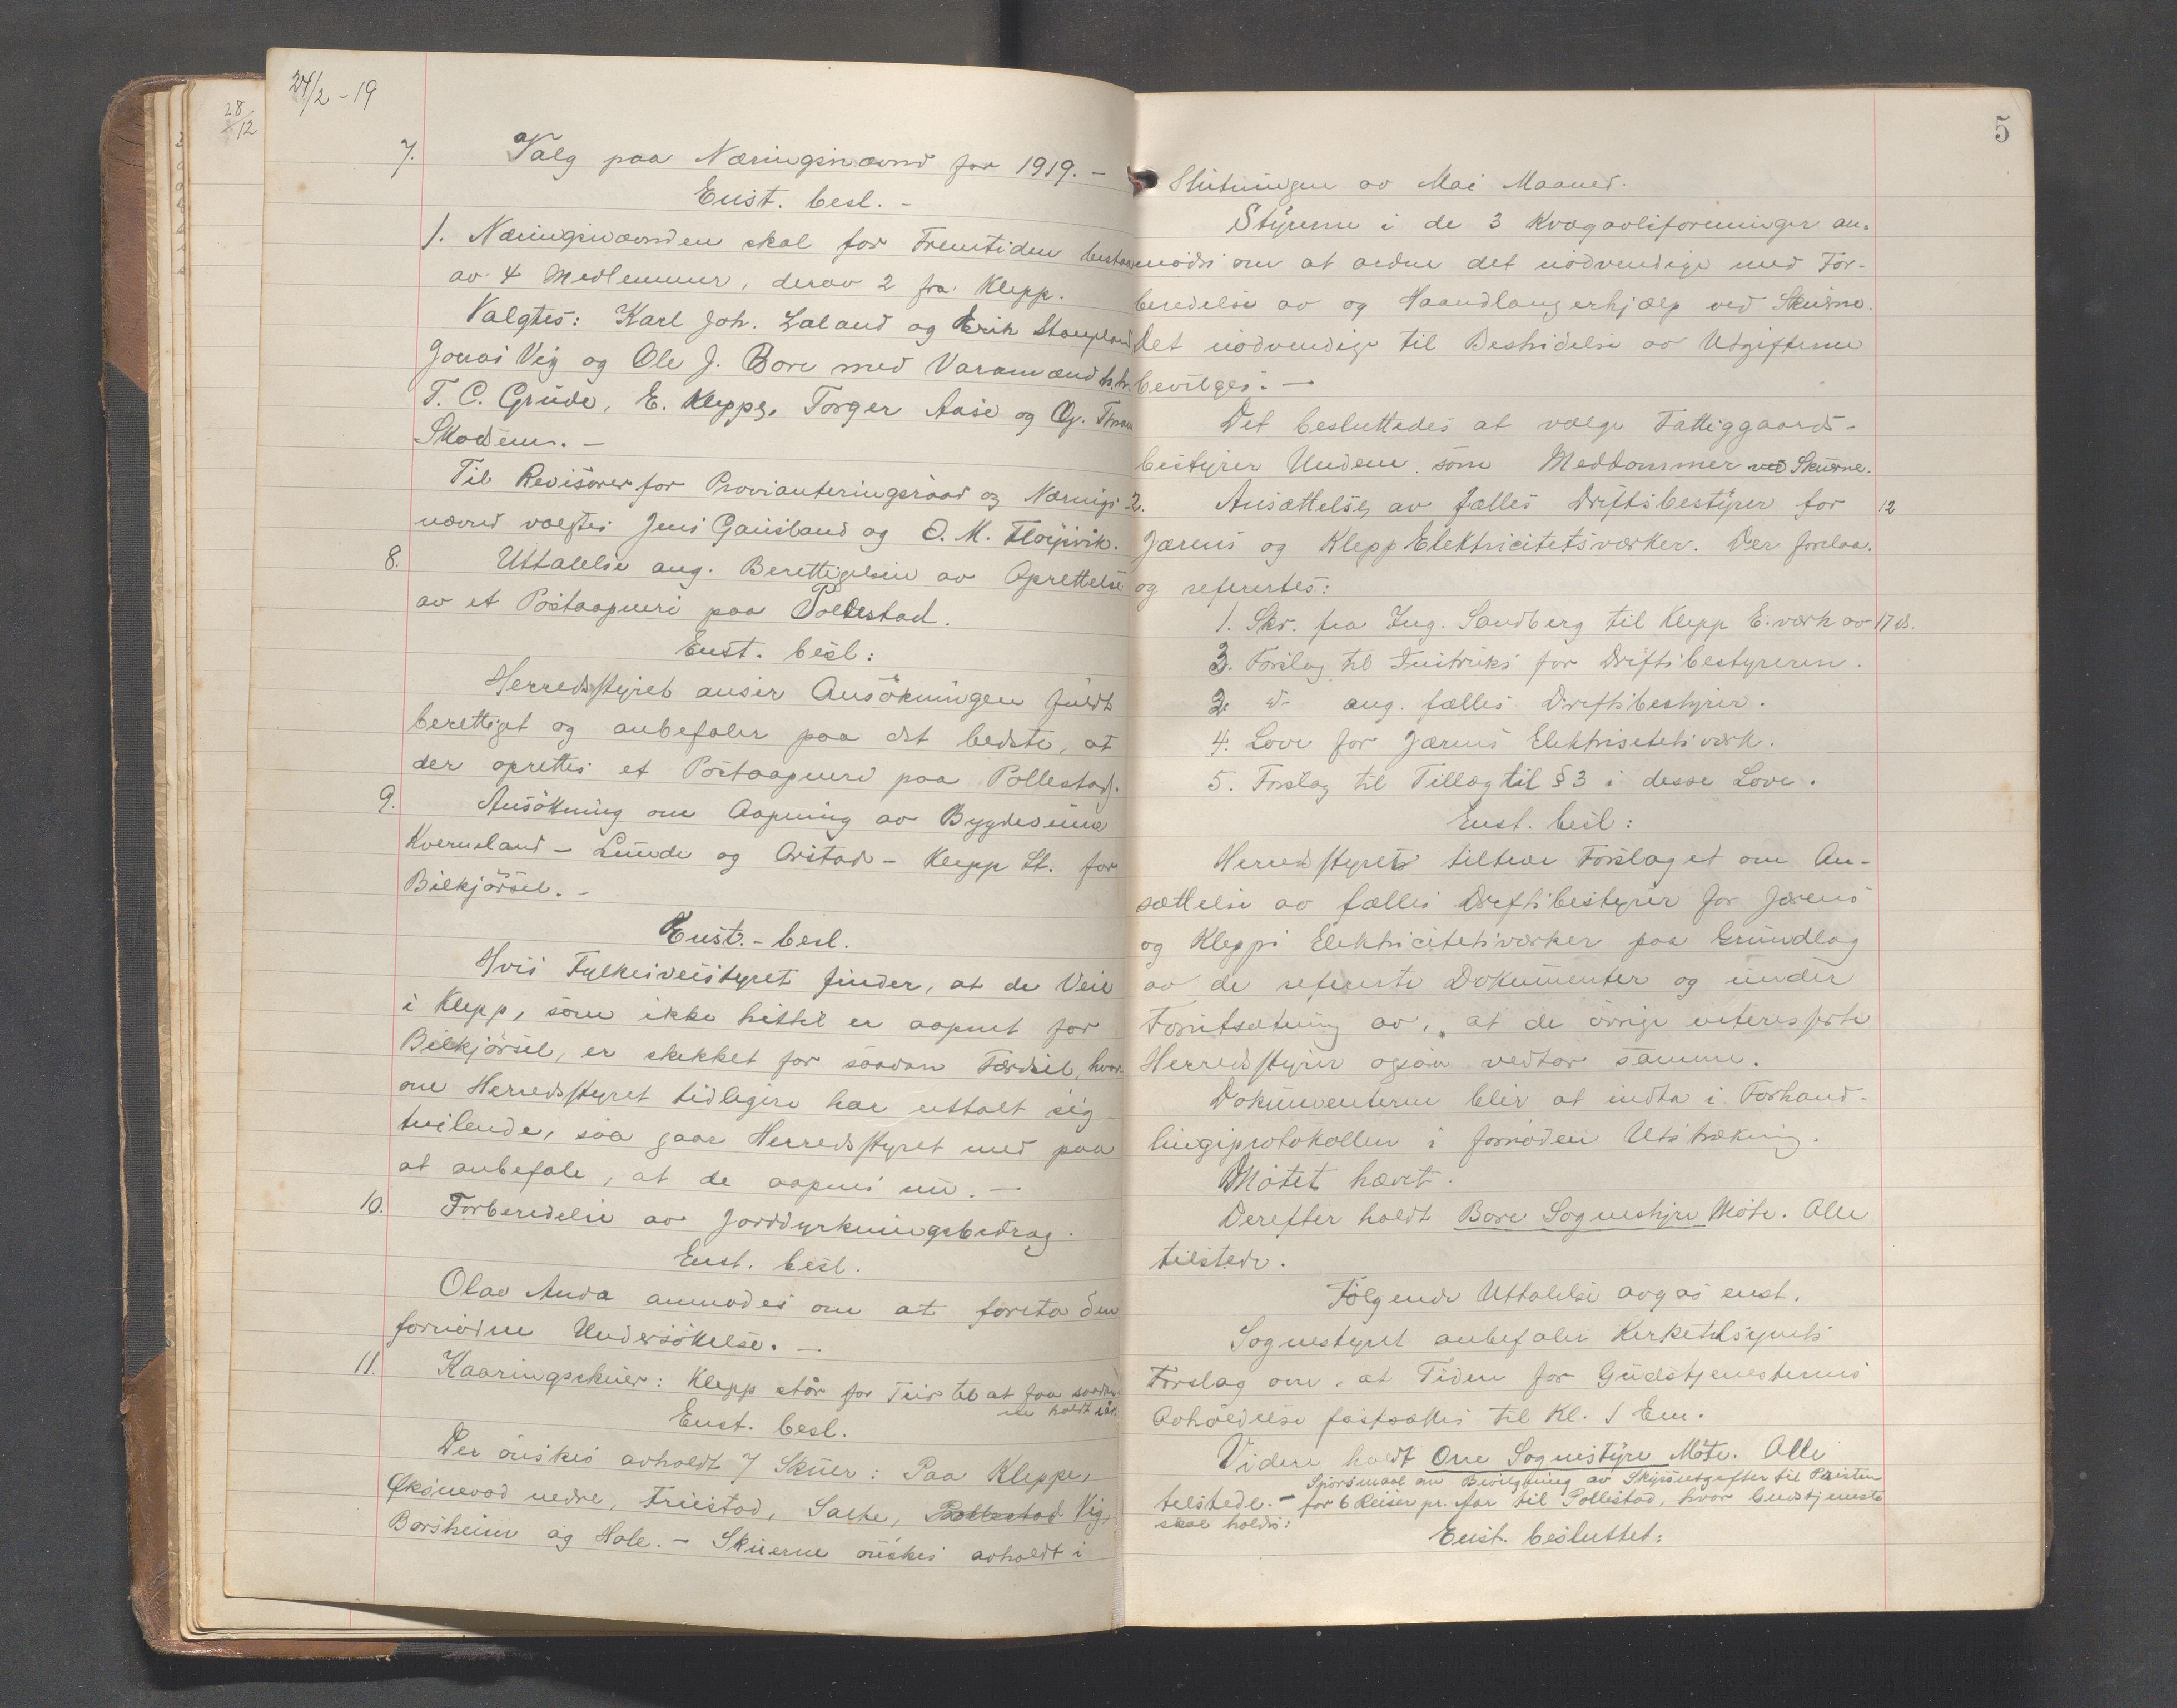 28/12
24/2-19
7. Valg paa Næringsnævnd for 1919. –
Enst. besl. –
1. Næringsnævnden skal for Fremtiden bestaa
av 4 Medlemmer, derav 2 fra Klepp.
Valgtes: Karl Joh. Laland og Erik Stangeland
Jonas Vig og Ole J. Bore med Varamænd h.h.
T. C. Grude, E. Kleppe, Torger Aase og Og. Thom
Skadsem. –
Til Revisorer for Provianteringsraad og Nærings-
nævnd valgtes Jens Gausland og O. M. Fløysvik.
8. Uttalelse ang. Berettigelsen av Oprettelse
av et Postaapneri paa Pollestad.
Enst. besl:
Herredsstyret anser Ansøkningen fuldt
berettiget og anbefaler paa det bedste, at
der oprettes et Postaapneri paa Pollestad.
9. Ansøkning om Aapning av Bygdeveiene
Kverneland – Lunde og Orstad – Klepp St. for
Bilkjørsel. –
Enst. – besl.
Hvis Fylkesveistyret finder, at de Veie
i Klepp, som ikke hittil er aapnet for
Bilkjørsel, er skikket for saadan Færdsel, hvor-
om Herredsstyret tidligere har uttalt sig
tvilende, saa gaar Herredsstyret med paa
at anbefale, at de aapnes nu. –
10. Forberedelse av Jorddyrkningsbidrag.
Enst. besl.
Olav Anda anmodes om at foreta den
fornødne Undersøkelse. –
11. Kaaringsskuer: Klepp står for Tur til at faa saadan
ne holdt iår.
Enst. besl.
Der ønskes avholdt 7 Skuer: Paa Kleppe,
Øksnevad nedre, Friestad, Salte, Pollestad Vig,
Borsheim og Hole. – Skuerne ønskes avholdt i
5
Slutningen av Mai Maaned.
Styrerne i de 3 Kvægavlsforeninger an-
modes om at ordne det nødvendige med For-
beredelse av og Haandlangerhjælp ved Skuerne.
Det nødvendige til Bestridelse av Utgifterne
bevilges. –
Det besluttedes at vælge Fattiggaards-
bestyrer Undem som Meddommer ved Skuerne.
12. Ansættelse av fælles Driftsbestyrer for
Jærens og Klepp Elektricitetsverker. Der forelaa
og refertes:
1. Skr. fra Ing. Sandberg til Klepp E.verk av 17 ds.
3. Forslag til Instruks for Driftsbestyreren.
2. do ang. fælles Driftsbestyrer.
4. Love for Jærens Elektrisetetsverk.
5. Forslag til Tillæg til § 3 i desse Love.
Enst. besl:
Herredsstyret tiltrær Forslaget om An-
sættelse av fælles Driftsbestyrer for Jærens
og Klepps Elektricitetsverker paa Grundlag
av de refererte Dokumenter og under
Forutsætning av, at de øvrige interesserte
Herredsstyrer ogsaa vedtar samme.
Dokumenterne blir at indta i Forhand-
lingsprotokollen i fornøden Utstrækning.
Møtet hævet.
Derefter holdt Bore Sognestyre Møte. Alle
tilstede.
Følgende Uttalelse avgas enst.
Sognestyret anbefaler Kirketilsynets
Forslag om, at Tiden for Gudstjenesternes
Avholdelse fastsættes til Kl. 1 Em.
Videre holdt Orre Sognestyre Møte. Alle
tilstede. – Spørsmaal om Bevilgning av Skyssutgifter til Presten
for 6 Reiser pr. Aar til Pollestad, hvor Gudstjeneste
skal holdes:
Enst. besluttet: